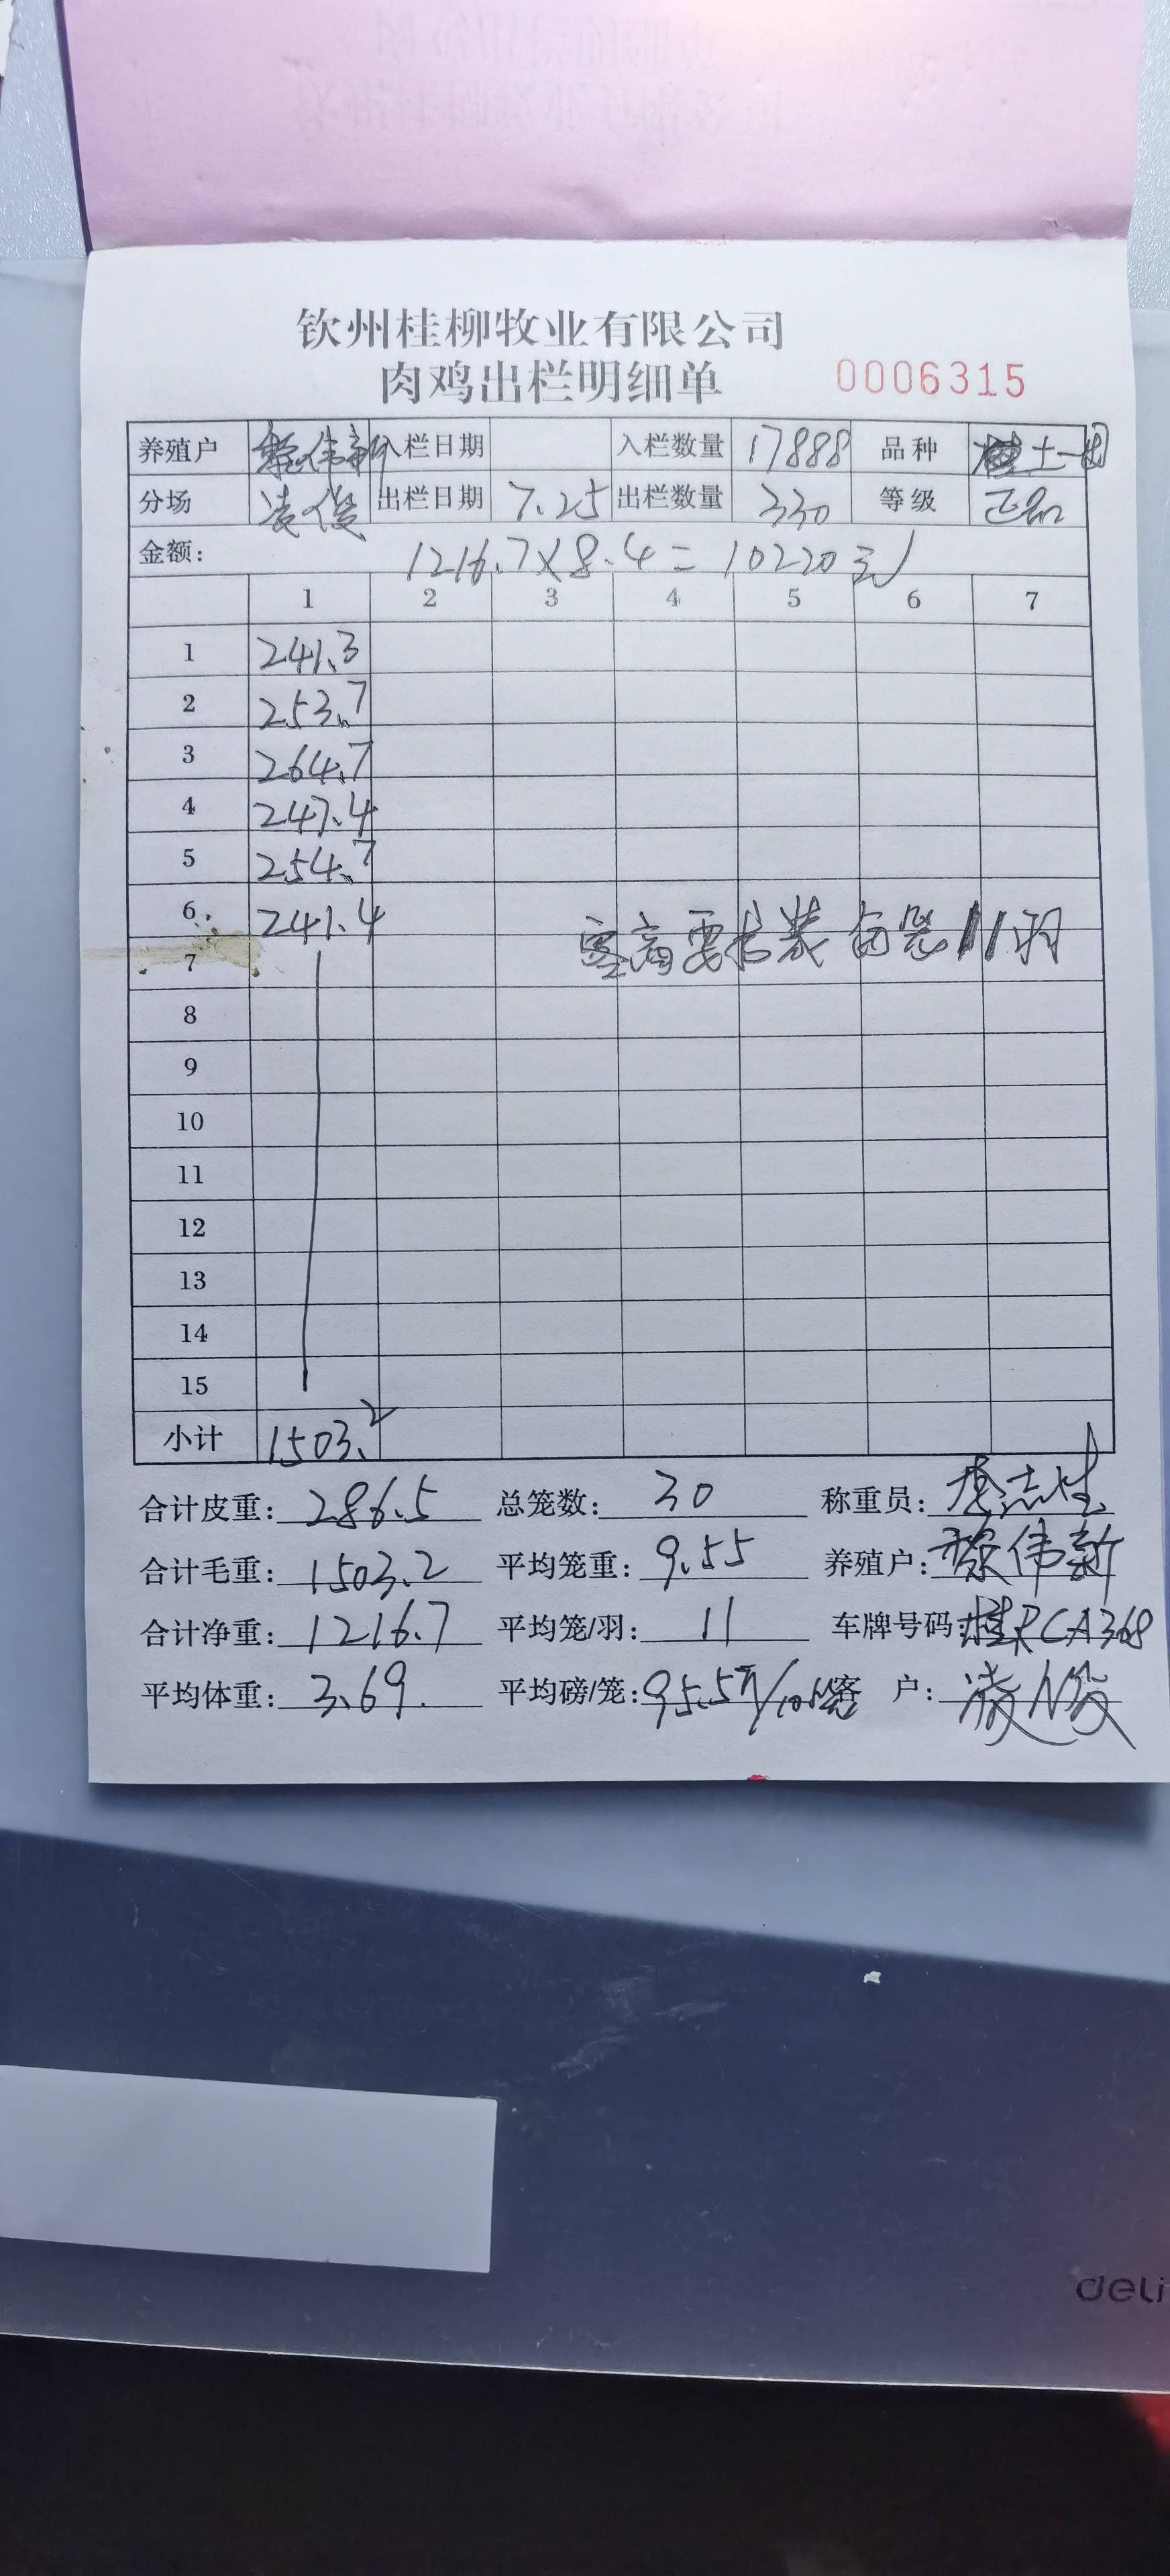 钦州桂柳牧业有限公司
肉鸡出栏明细单 0006315
养殖户 黎伟新 入栏日期 入栏数量 17888 品种 土一
分场 凌俊 出栏日期 7.25 出栏数量 330 等级 正品
金额: 1216.7×8.4=10220元
1 2 3 4 5 6 7
1 241.3
2 253.7
3 264.7
4 247.4
5 254.7
6 241.4
客商要求装 每笼11羽
7
8
9
10
11
12
13
14
15
小计 1503.2
合计皮重: 286.5 总笼数: 30 称重员:
合计毛重: 1503.2 平均笼重: 9.55 养殖户: 黎伟新
合计净重: 1216.7 平均笼/羽: 11 车牌号码: 桂RCA368
平均体重: 3.69. 平均磅/笼: 95.5斤/10笼 客 户: 凌俊
deli